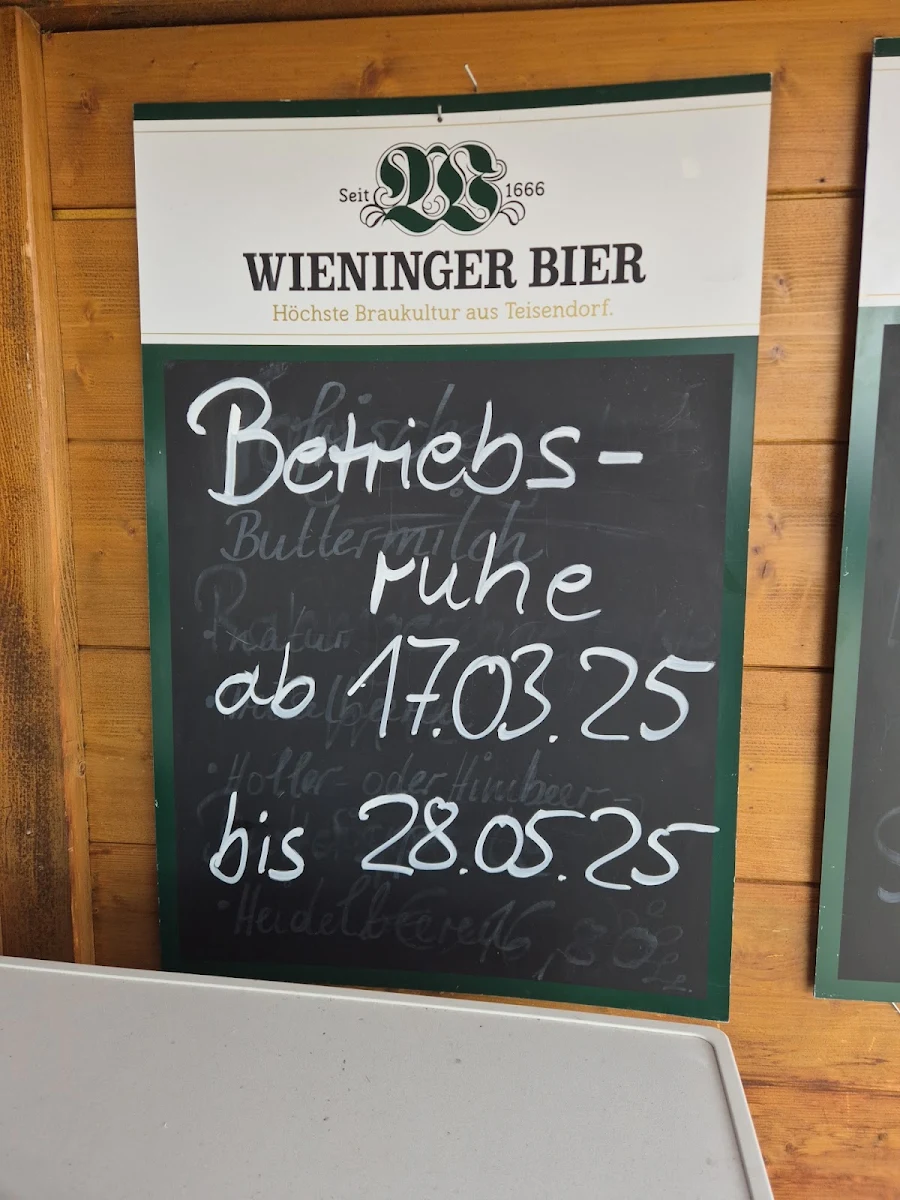 Seit 1666
WIENINGER BIER
Höchste Braukultur aus Teisendorf.
Betriebs-
Buttermilch
ruhe
ab 17.03.25
Holler- oder Himbeer-
bis 28.05.25
Heidelbeere